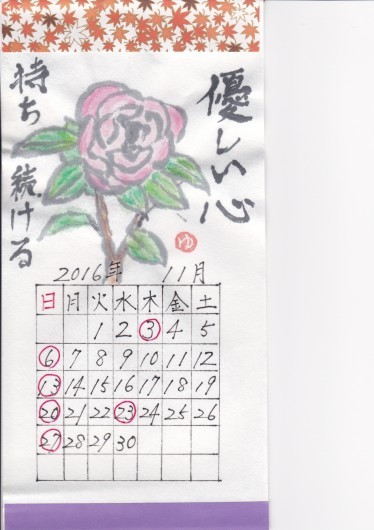 優しい心
持ち続ける
ゆ
2016年 11月
日 月 火 水 木 金 土
1 2 3 4 5
6 7 8 9 10 11 12
13 14 15 16 17 18 19
20 21 22 23 24 25 26
27 28 29 30